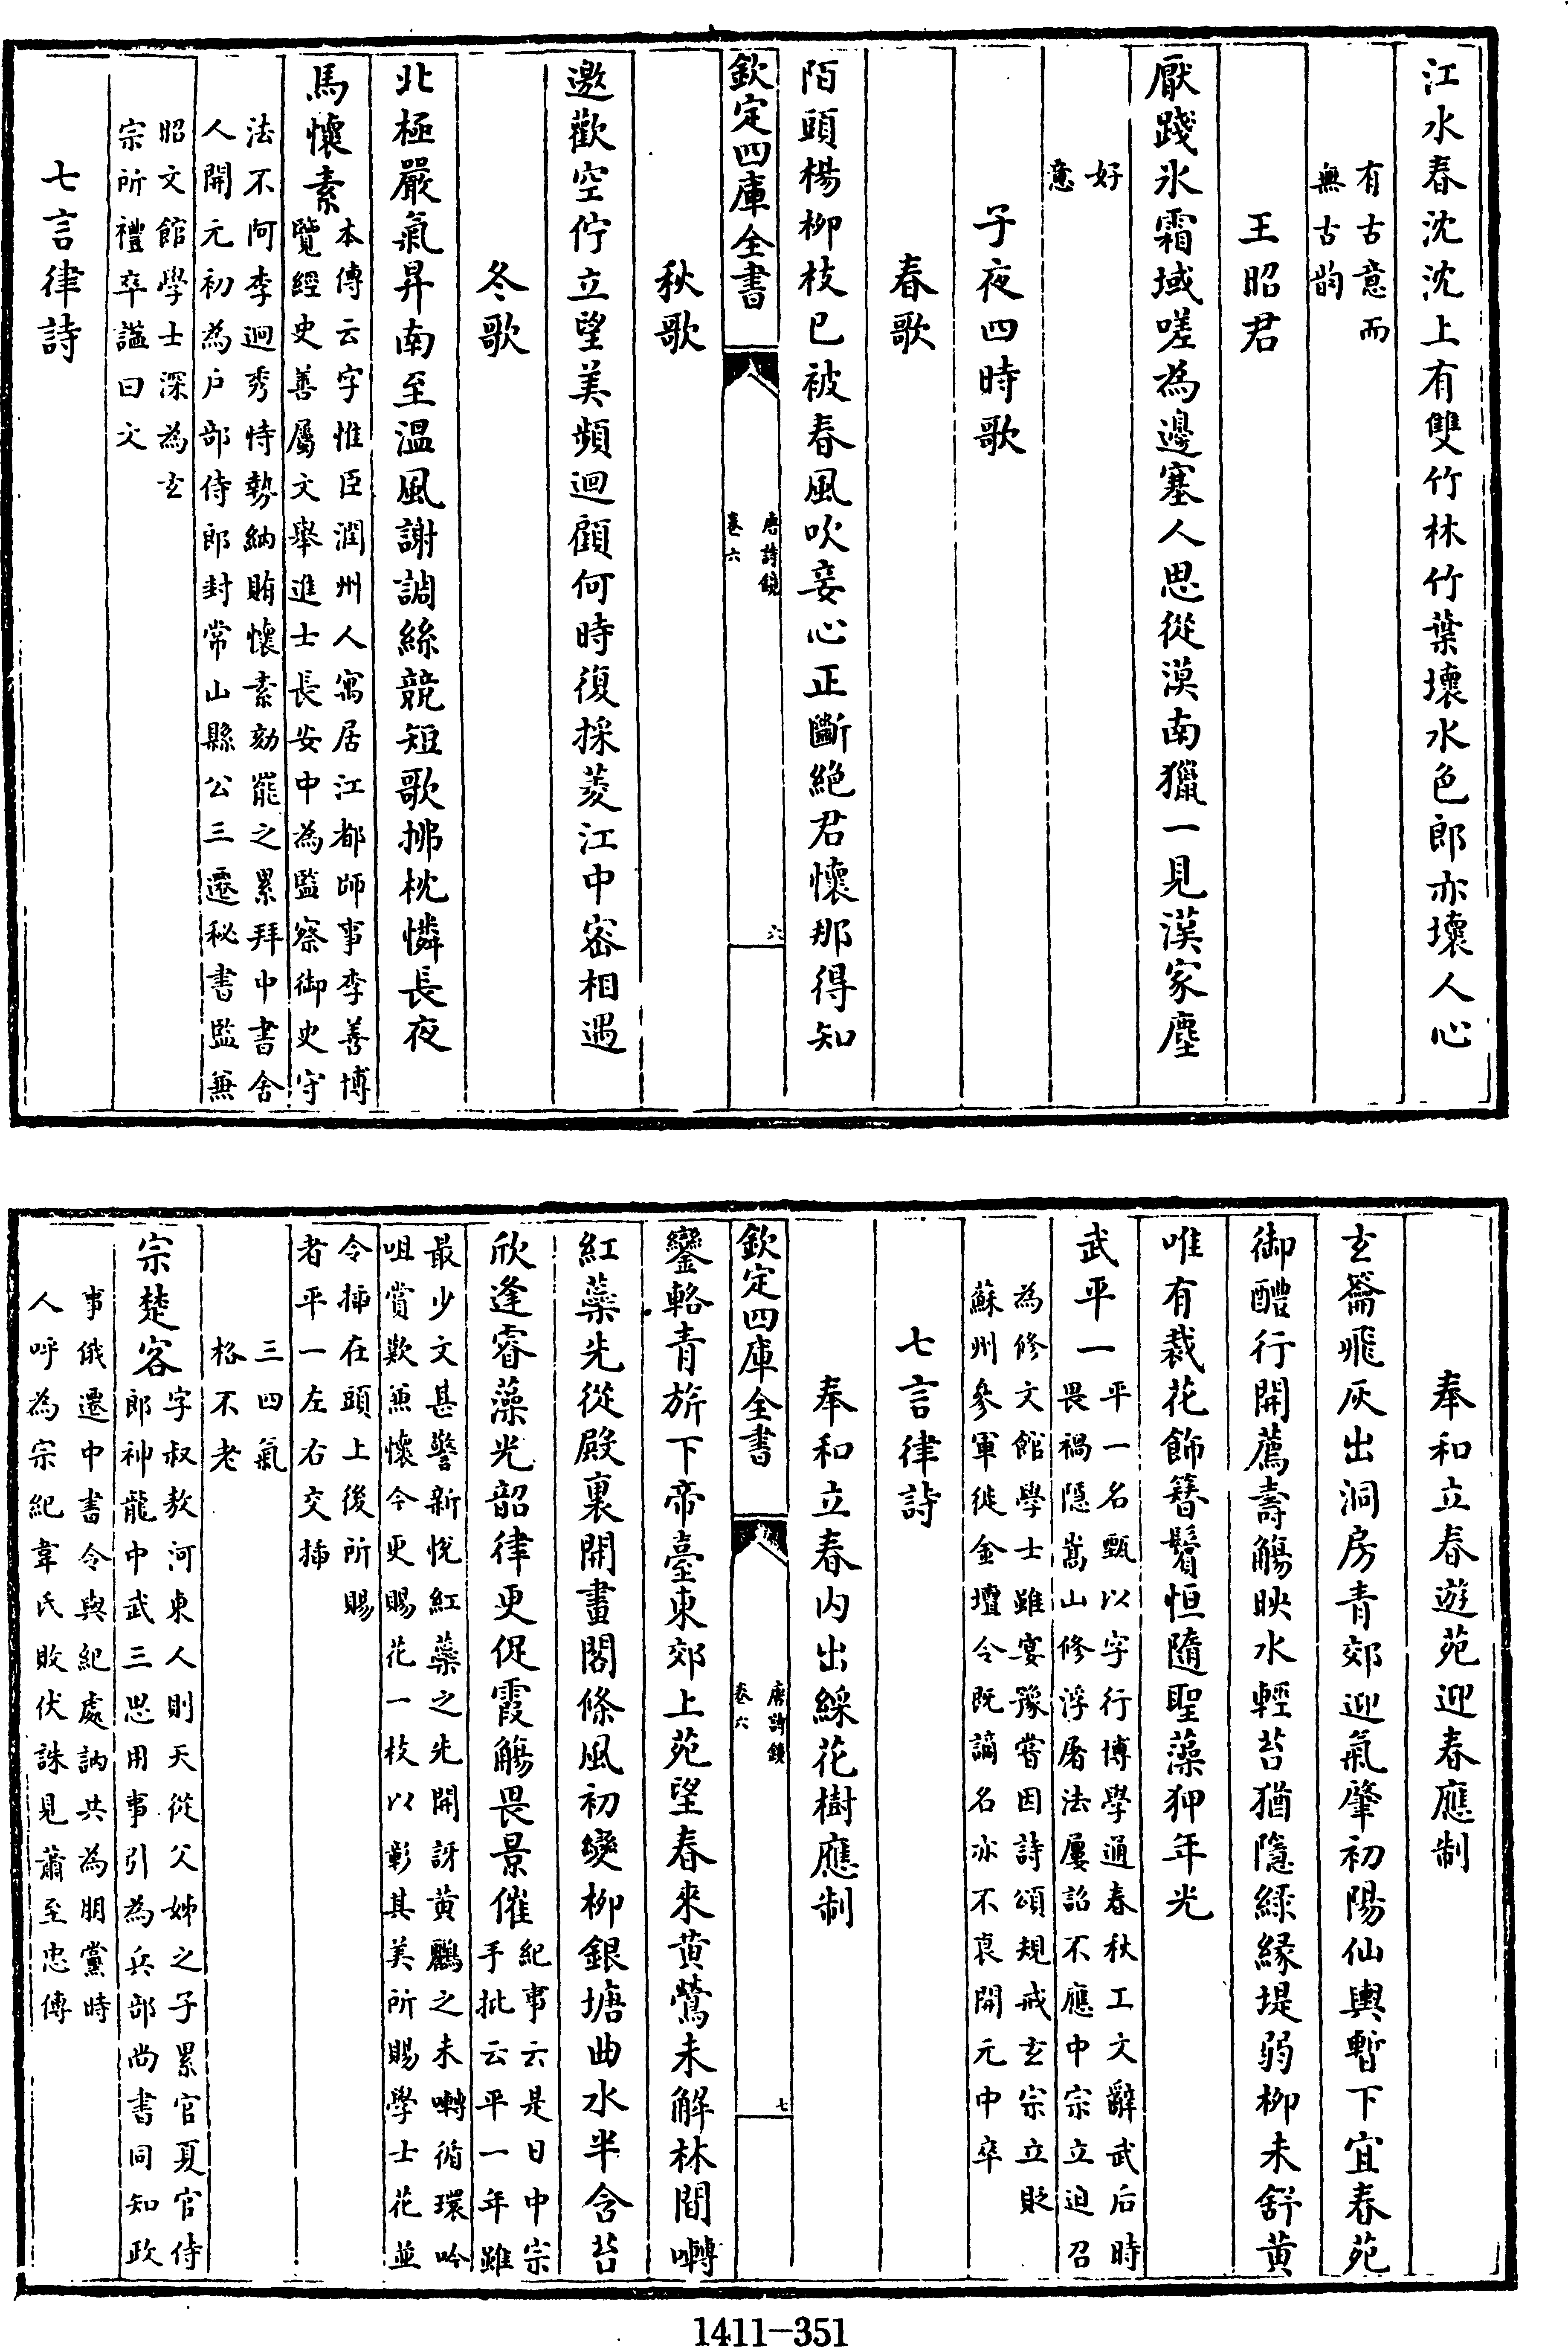 江水春沈沈上有雙竹林竹葉壞水色郎亦壞人心
有古意而
無古韵
王昭君
厭踐氷霜域嗟為邊塞人思從漠南獵一見漢家塵
好
意
子夜四時歌
春歌
陌頭楊柳枝已被春風吹妾心正斷絕君懷那得知
欽定四庫全書
唐詩鏡
卷六
六
秋歌
邀歡空佇立望美頻迴顧何時復採菱江中密相遇
冬歌
北極嚴氣昇南至温風謝調絲競短歌拂枕憐長夜
馬懷素
本傳云字惟臣潤州人寓居江都師事李善博
覽經史善屬文舉進士長安中為監察御史守
法不阿李迥秀恃勢納賄懷素劾罷之累拜中書舍
人開元初為户部侍郎封常山縣公三遷秘書監兼
昭文館學士深為玄
宗所禮卒諡曰文
七言律詩
奉和立春遊苑迎春應制
玄籥飛灰出洞房青郊迎氣肇初陽仙輿暫下宜春苑
御醴行開薦壽觴映水輕苔猶隱綠緣堤弱柳未舒黃
唯有裁花飾簪鬢恒隨聖藻狎年光
武平一
平一名甄以字行博學通春秋工文辭武后時
畏禍隱嵩山修浮屠法屢詔不應中宗立迫召
為修文館學士雖宴豫嘗因詩頌規戒玄宗立貶
蘇州參軍徙金壇令既謫名亦不衰開元中卒
七言律詩
奉和立春内出綵花樹應制
欽定四庫全書
唐詩鏡
卷六
七
鑾輅青旂下帝臺東郊上苑望春來黄鶯未解林間囀
紅蘂先從殿裏開畫閣條風初變柳銀塘曲水半含苔
欣逢睿藻光韶律更促霞觴畏景催
紀事云是日中宗
手批云平一年雖
最少文甚警新悅紅蘂之先開訝黄鸝之未囀循環吟
咀賞歎兼懷今更賜花一枝以彰其美所賜學士花並
令插在頭上後所賜
者平一左右交插
三四氣
格不老
宗楚客
字叔敖河東人則天從父姊之子累官夏官侍
郎神龍中武三思用事引為兵部尚書同知政
事俄遷中書令與紀處訥共為朋黨時
人呼為宗紀韋氏敗伏誅見蕭至忠傳
1411-351